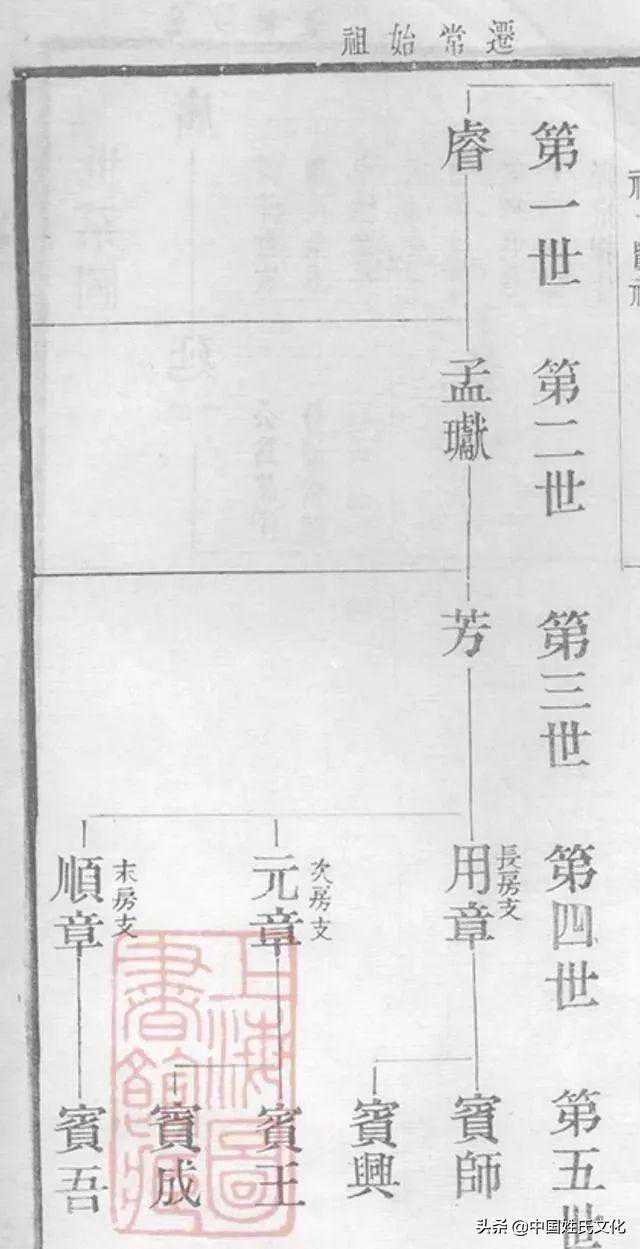 遷常始祖
第一世
睿
第二世
孟瓛
第三世
芳
第四世
用章
長房支
元章
次房支
順章
末房支
第五世
賓師
賓興
賓王
賓成
賓吾
上海圖書館藏
头条 @中国姓氏文化